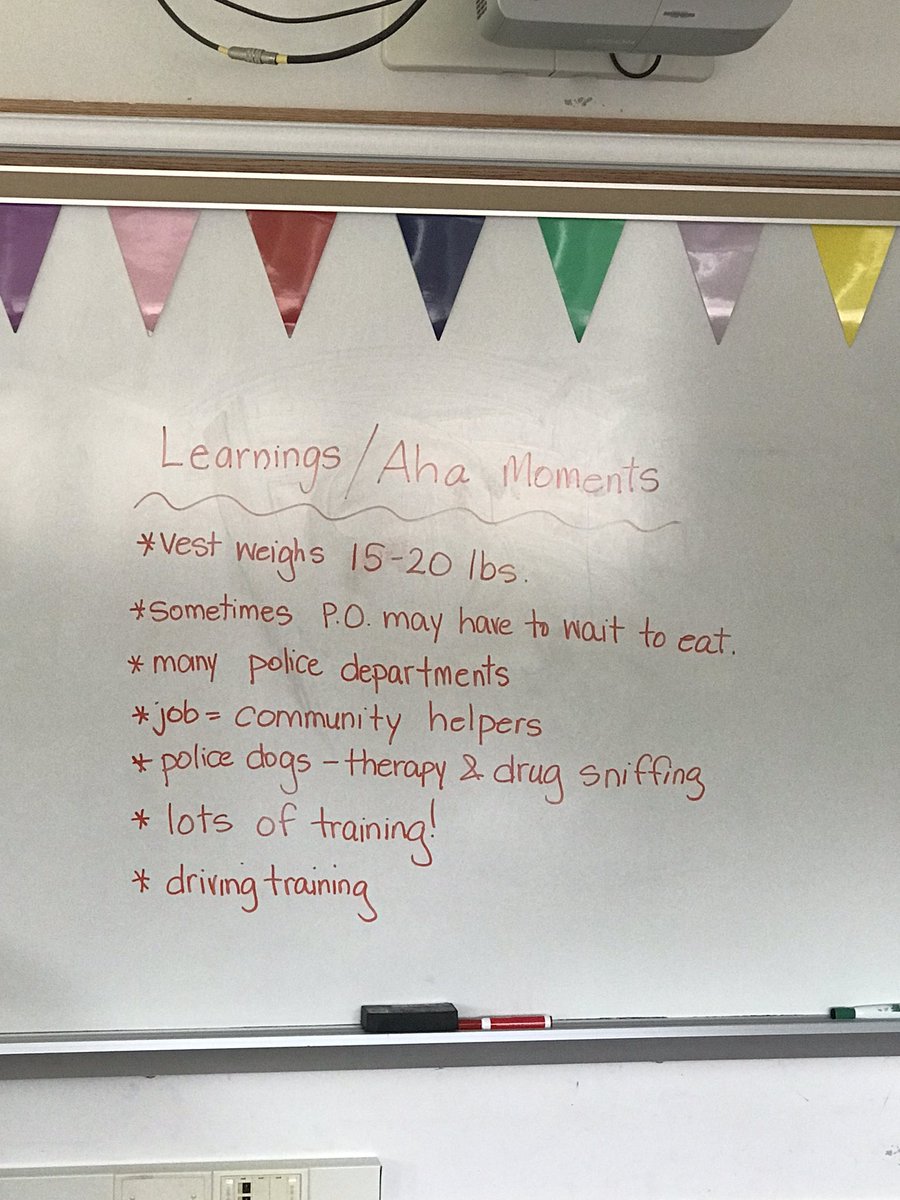 Learnings/Aha Moments
*Vest weighs 15-20 lbs.
*Sometimes P.O. may have to wait to eat.
* many police departments
*job = community helpers
* police dogs - therapy & drug sniffing
* lots of training!
* driving training